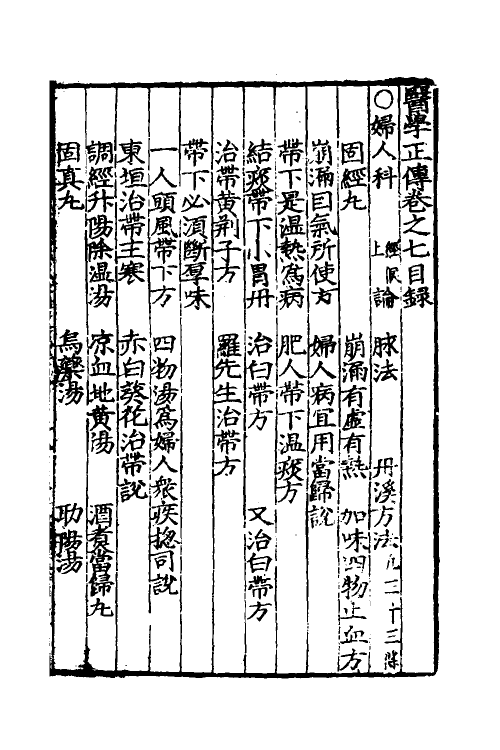 醫學正傳卷之七目錄
○婦人科 上 經候 論 脉法 丹溪方法凡三十三條
固經丸 崩漏有虛有熱 加味四物止血方
崩漏曰氣所使方 婦人病宜用當歸說
帶下是温熱為病 肥人帶下温痰方
結痰帶下小胃丹 治白帶方 又治白帶方
治帶黄荆子方 羅先生治帶方
帶下必須斷厚味
一人頭風帶下方 四物湯為婦人衆疾揔司說
東垣治帶主寒 赤白葵花治帶說
調經升陽除温湯 凉血地黄湯 酒煮當歸丸
固真丸 烏藥湯 助陽湯